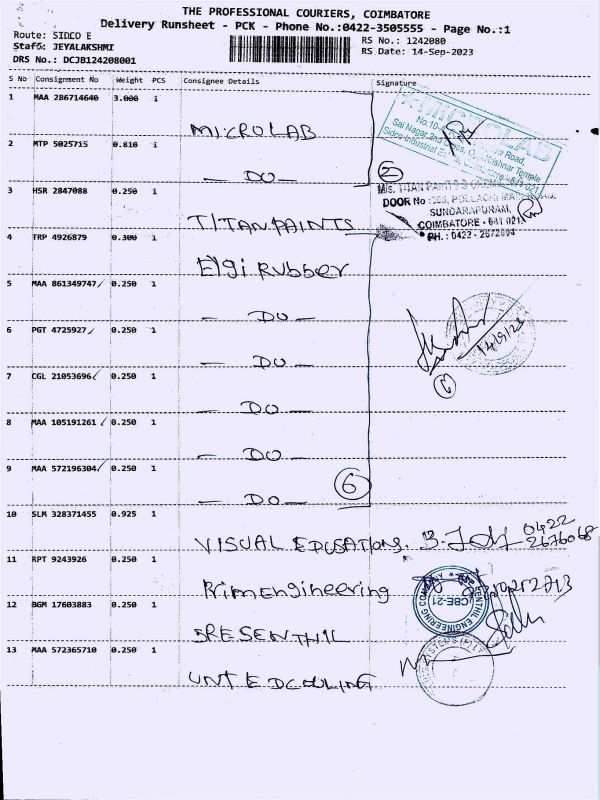 THE PROFESSIONAL COURIERS, COIMBATORE
Delivery Runsheet - PCK - Phone No.:0422-3505555 - Page No.:1
Route: SIDCO E
RS No.: 1242080
Staff: JEYALAKSHMI
RS Date: 14-Sep-2023
DRS No.: DCJB124208001
S No Consignment No Weight PCS Consignee Details Signature
1 MAA 286714640 3.000 1
MICROLAB
2 MTP 5025715 0.810 1
— DO —
2
3 HSR 2847088 0.250 1
TITANPAINTS
DOOR No
SUNDARAPURAM,
COIMBATORE - 641 021
PH.: 0422 - 2672094
4 TRP 4926879 0.300 1
Elgi Rubber
5 MAA 861349747 0.250 1
— DO —
6 PGT 4725927 0.250 1
— DO —
14/9/23
7 CGL 21053696 0.250 1
— DO —
8 MAA 105191261 0.250 1
— DO —
9 MAA 572196304 0.250 1
— DO —
6
10 SLM 328371455 0.925 1
VISUAL EDUSATIONS.
0422
2676068
11 RPT 9243926 0.250 1
Rim Engineering
12 BGM 17603883 0.250 1
SRESENTHIL
SENTHIL ENGINEERING COMPANY
CBE-21
13 MAA 572365710 0.250 1
UNTEDCOULING